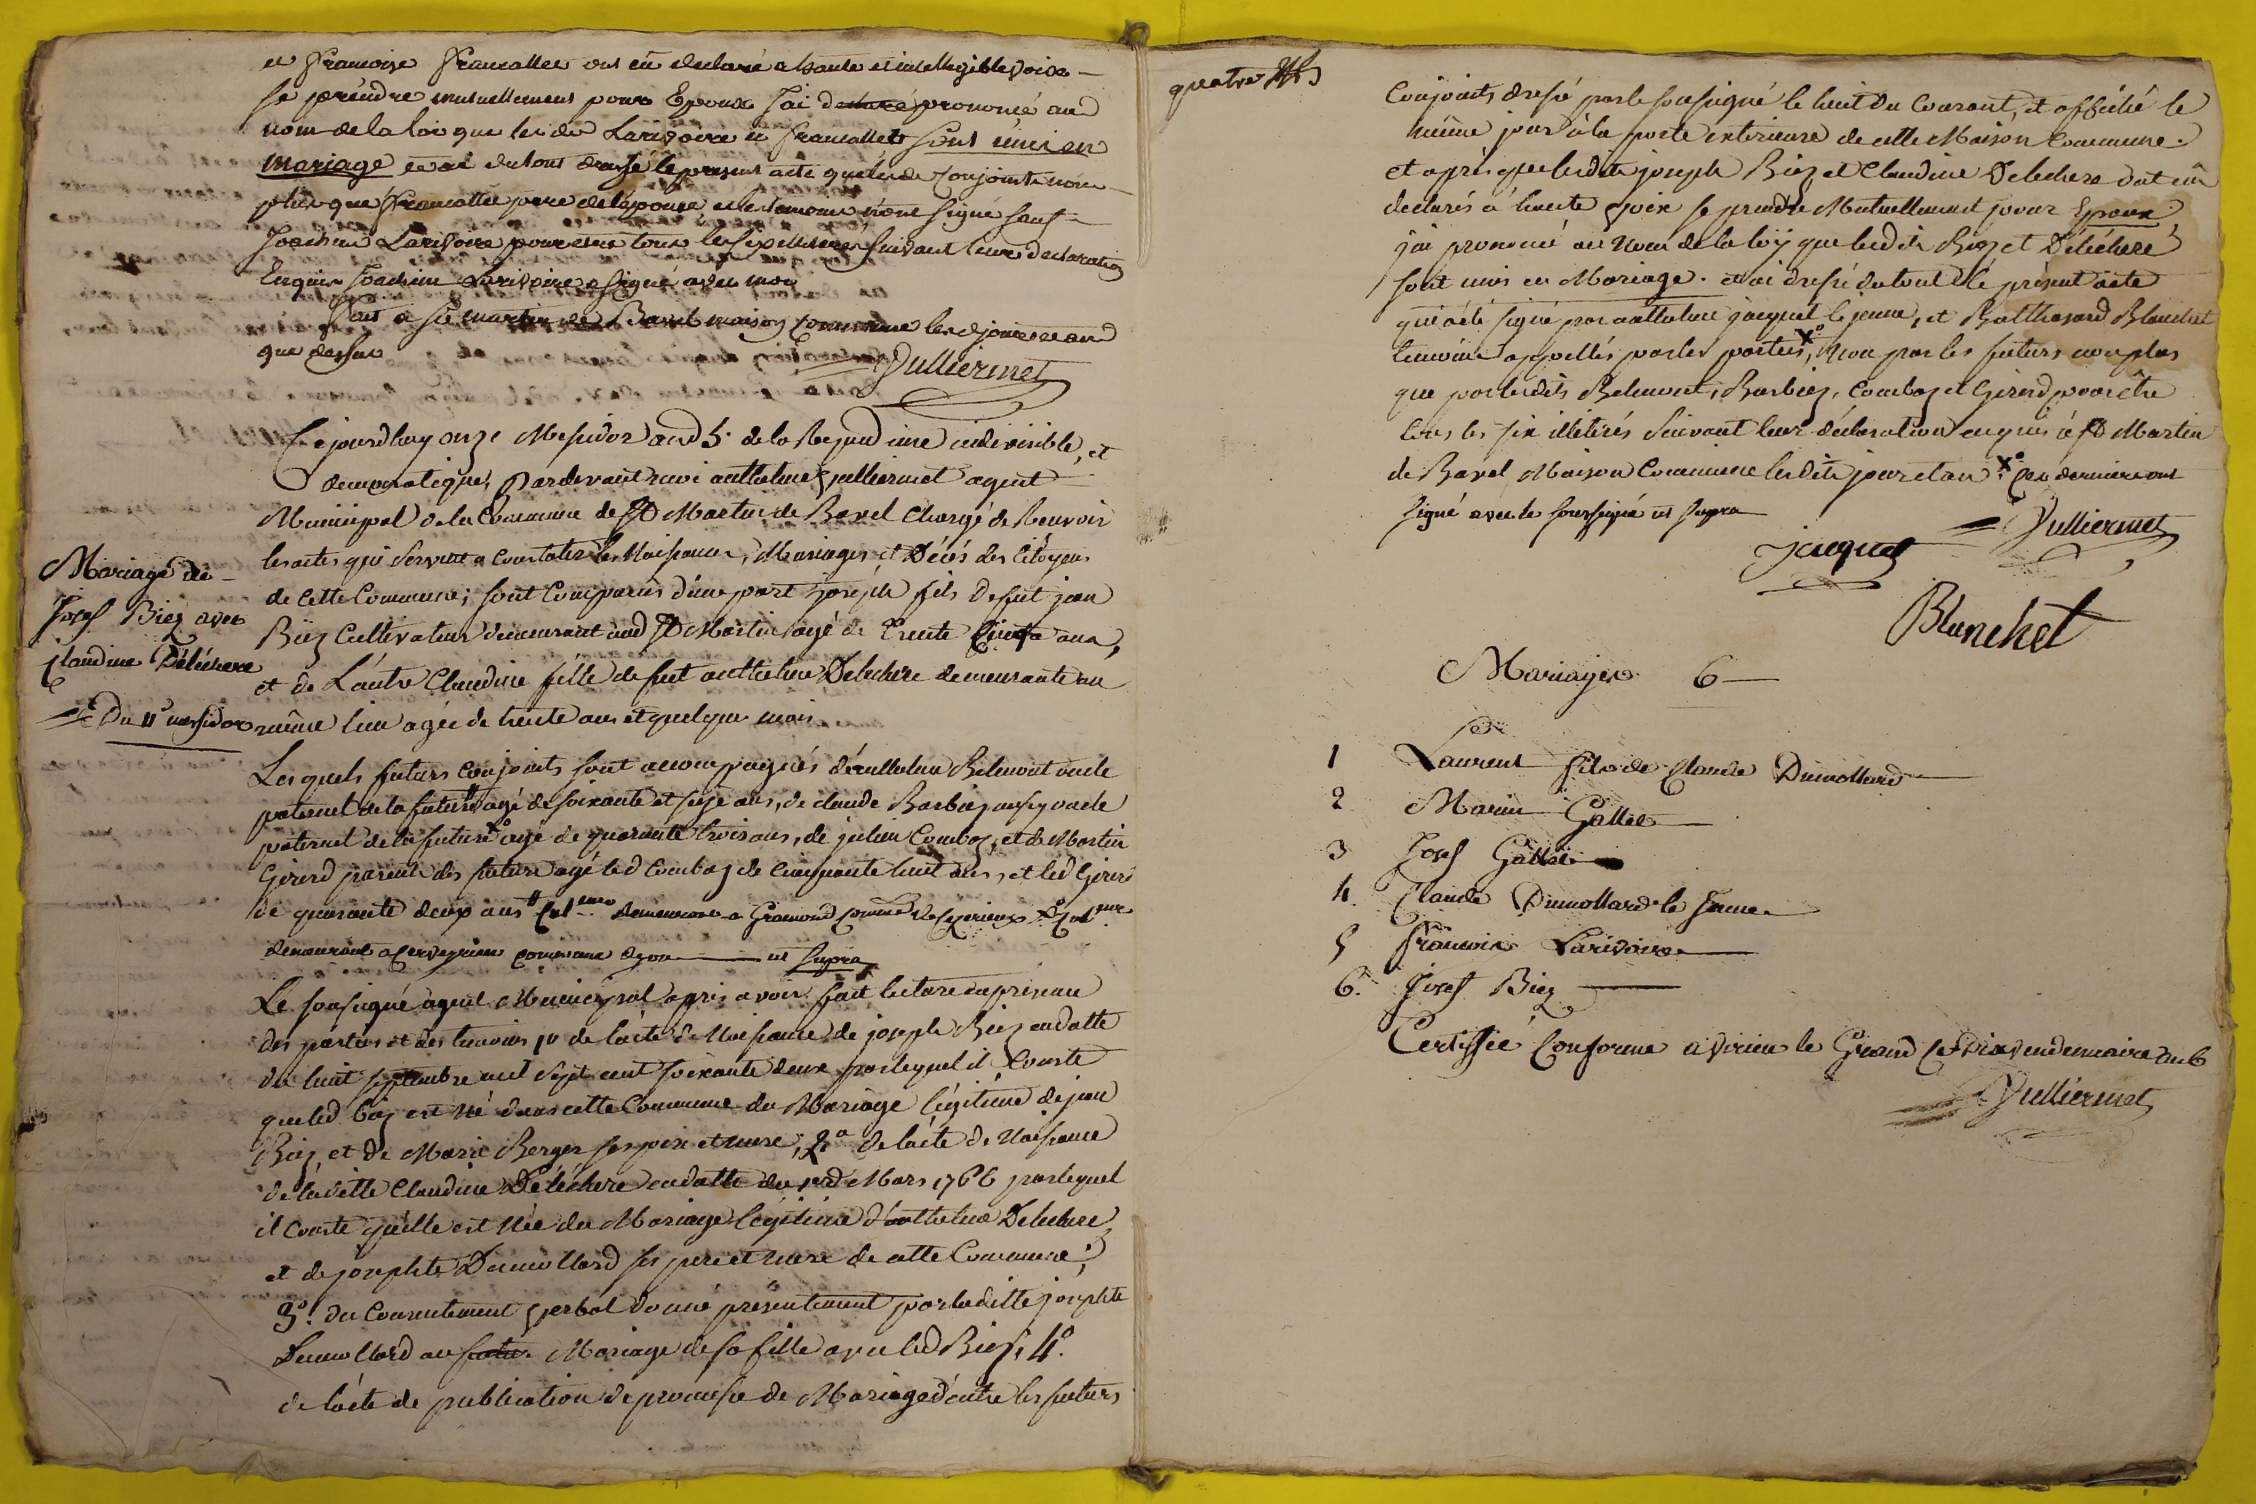 et Francoise Francallet ont eü declaré a haute et intellegible voix
se prendre mutuellement pour Epoux J'ai declaré prononcé au
nom de la loi que lesdits Larivoire et Francallet sont unis en
mariage et ai du tout dressé le present acte que lesd. Conjoints non
plus que Francallet pere de l'épouse et les temoins n'ont signé sauf
Joachim Larivoire pour etre tous les six illiterés suivant leur declaration
Enquis Joachim Larivoire a signé avec moi
fait a St martin de Bavel maison commune les d jour et an
que dessus
Jullierment
Cejourdhuy onze Messidor an 5e de la Repud une indivisible, et
democratique, Pardevant moi anthelme Jullierment agent
Municipal de la Commune de St Martin de Bavel chargé de Recevoir
les actes qui servent a constater les Naissances, Mariages, et Décés des Citoyens
de cette Commune; sont Comparus d'une part joseph fils de fut jean
Biez Cultivateur demeurant aud St Martin agé de trente cinq ans,
et de L'autre Claudine fille de fut anthelme Delechere demeurante au
même lieu agée de trente ans et quelque mois
Mariage de
Josef Biez avec
Claudine Délechere
Du 11e messidor
Lesquels futurs conjoints sont accompagnés d'anthelme Belmont oncle
paternel de la future agé de soixante et seize ans, de claude Barbiez aussy oncle
paternel de la future x° agé de quarante trois ans, de julien Combaz, et de Martin
Girerd parents des futurs agé led Combaz de cinquante huit ans, et led Girerd
de quarante deux ans # Cultr demeurant a Gramond commune de Ceyzerieux x° Cultr
demeurant a Cerveyrieu commune dyon ut supra
Le soussigné agent Municipal apris avoir fait lecture en presence
des parties et des temoins 1° de l'acte de Naissance de joseph Biez en datte
du huit septembre mil sept cent soixante deux par lequel il Conste
que led biez est Né dans cette Commune du Mariage légitime de jean
Biez, et de Marie Berger ses pere et mere; 2° de l'acte de Naissance
de laditte Claudine Délechere en datte du Mars 1766 par lequel
il conste quelle est Née du Mariage légitime d'anthelme Delechere
et de josephte Dumollard ses pere et mere de cette Commune;
3°. du Consentement verbal donné présentement par laditte josephte
Dumollard au futur Mariage de sa fille avec led Biez, 4°.
de l'acte de publication de promesse de Mariage d'entre les futurs
quatre
Conjoints dressé par le soussigné le huit du Courant, et affiché le
même jour à la porte exterieure de cette Maison Commune.
et après que lesdits joseph Biez et Claudine Delechere ont eü
declarés à haute voix se prendre Mutuellement pour Epoux
j'ai prononcé au Nom de la loÿ que lesdits Biez et Délécheré
sont unis en Mariage. et ai dressé du tout le présent acte
qui a été signé par anthelme jacquet le jeune, et Balthasard Blanchet
temoins appellés par les parties, x° Non par les futurs non plus
que par lesdits Belmont, Barbiez, Combaz et Girerd pour être
tous les six illitérés Suivant leur déclaration enquis à St Martin
de Bavel Maison Commune lesdits jour et an x° Ces derniers ont
signé avec le soussigné ut supra
Jullierment
Jacquet
Blanchet
Mariages 6
1 Laurent fils de Claude Dumollard
2 Marin Gallet
3 Josef Gallet
4. Claude Dumollard le Jeune
5 Francois Larivoire
6. Josef Biez
Certiffié Conforme a virieu le Grand le dix vendemiaire an 6
Jullierment